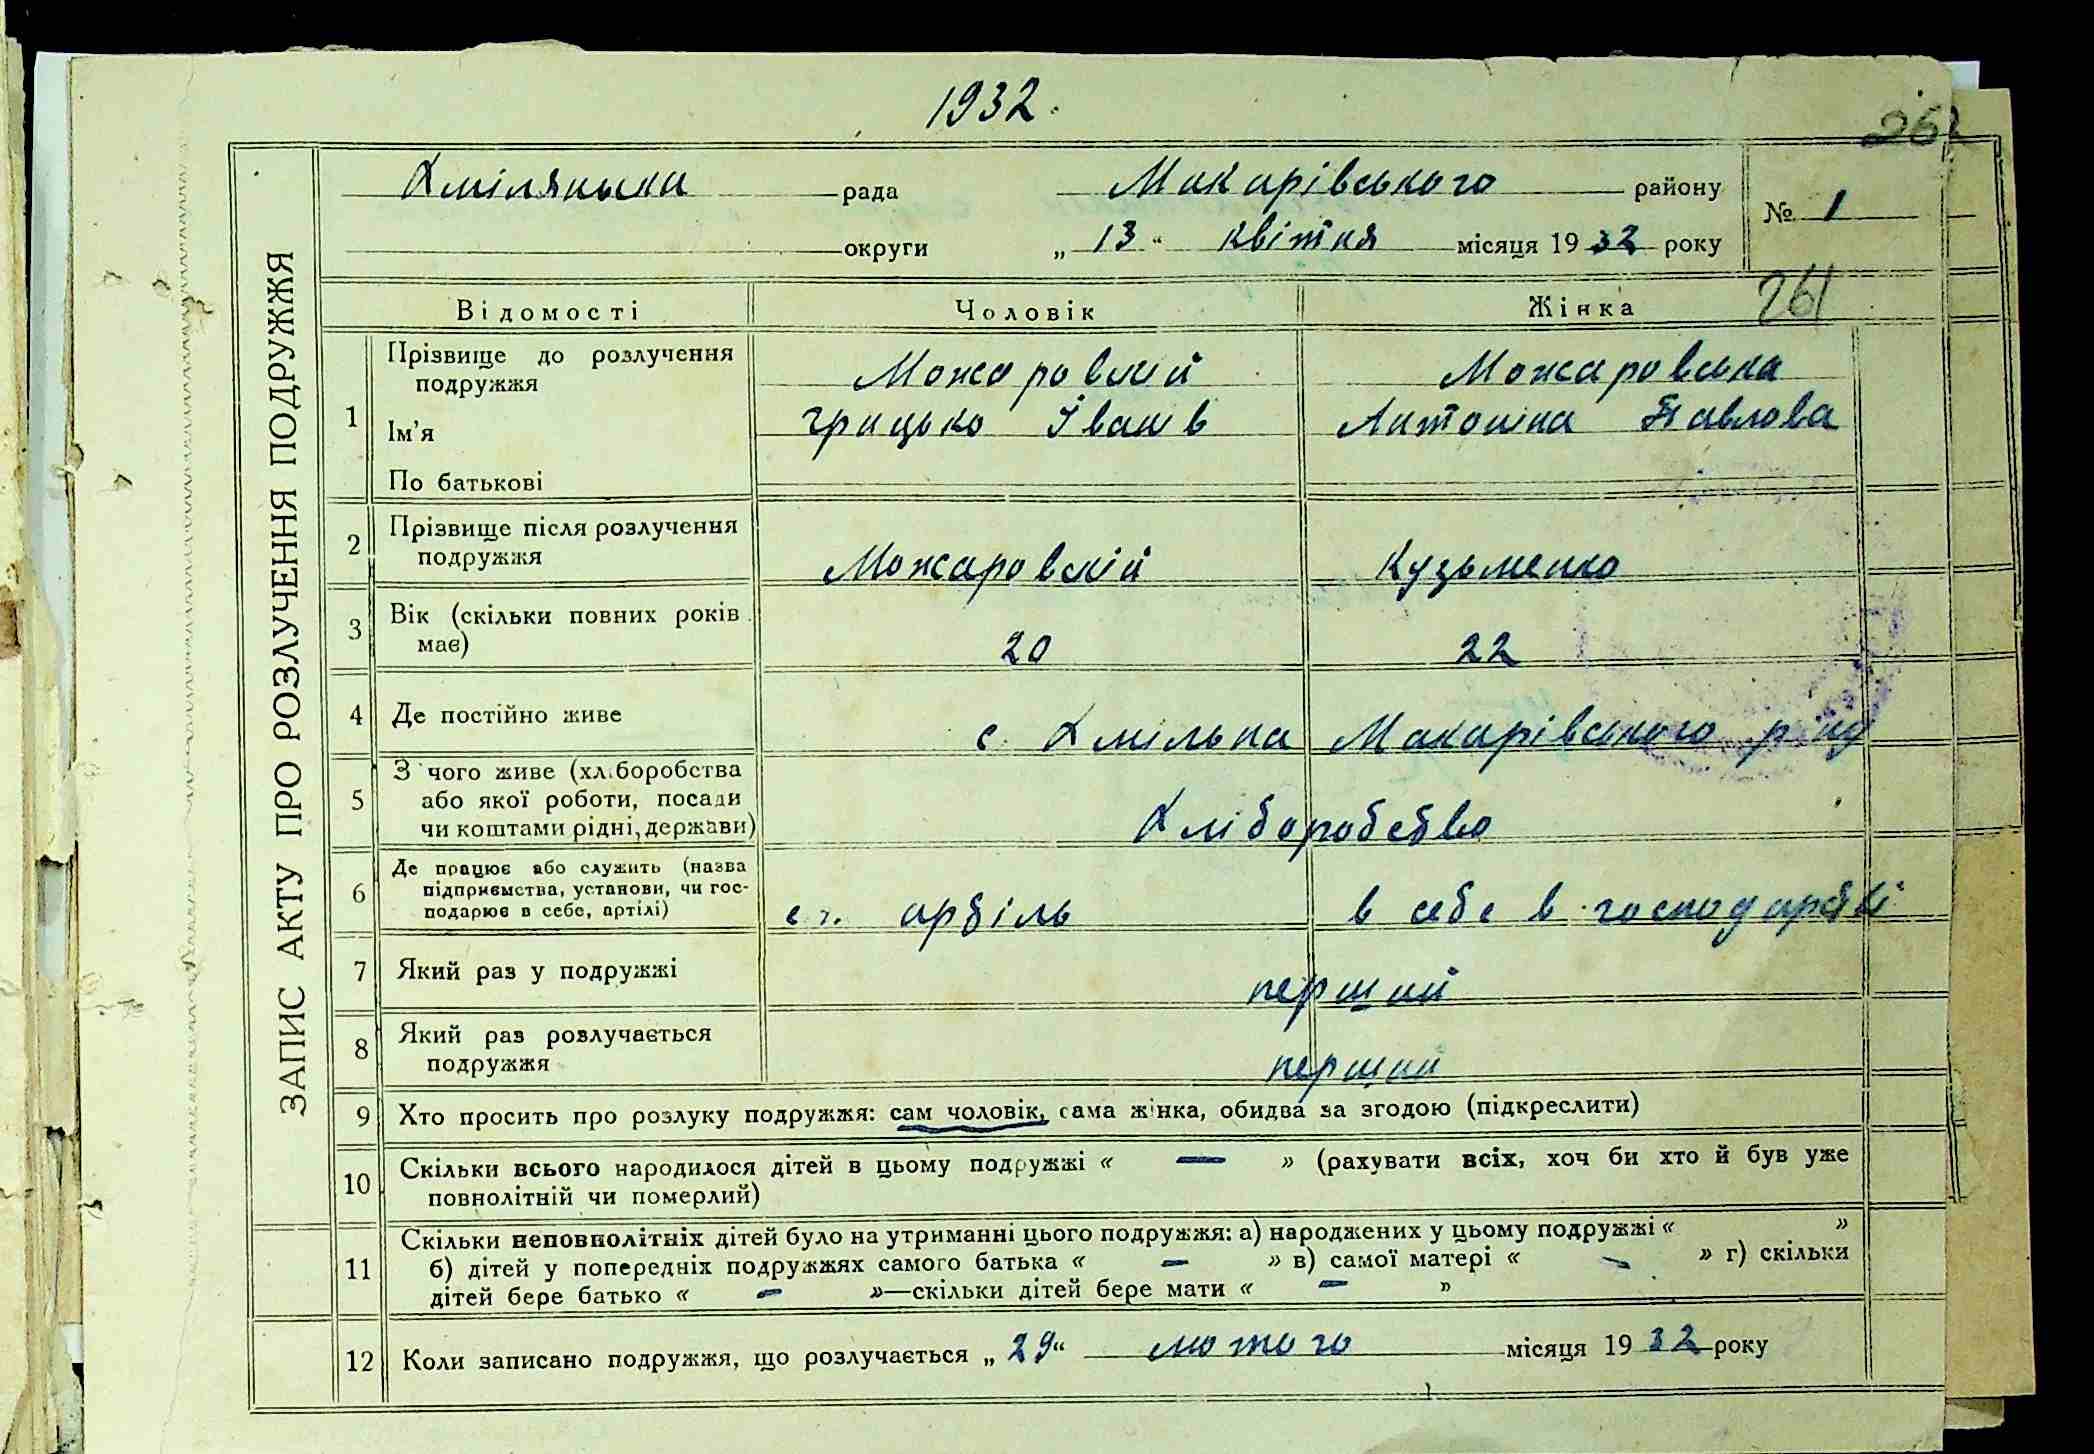 1932.
262
Хмілянська рада Макарівського району № 1
округи „ 13 “ квітня місяця 1932 року
261
ЗАПИС АКТУ ПРО РОЗЛУЧЕННЯ ПОДРУЖЖЯ
Відомості Чоловік Жінка
1 Прізвище до розлучення подружжя Можаровский Можаровська
Ім'я Грицько Іванів Антоніна Павлова
По батькові
2 Прізвище після розлучення
подружжя Можаровский Кузьменко
3 Вік (скільки повних років
має) 20 22
4 Де постійно живе с. Хмільна Макарівського р-ну
5 З чого живе (хліборобства
або якої роботи, посади
чи коштами рідні, держави) Хліборобство
6 Де працює або служить (назва
підприємства, установи, чи гос-
подарює в себе, артілі) с.г. артіль в себе в господарстві
7 Який раз у подружжі перший
8 Який раз розлучається
подружжя перший
9 Хто просить про розлуку подружжя: сам чоловік, сама жінка, обидва за згодою (підкреслити)
10 Скільки всього народилося дітей в цьому подружжі « — » (рахувати всіх, хоч би хто й був уже
повнолітній чи померлий)
11 Скільки неповнолітніх дітей було на утриманні цього подружжя: а) народжених у цьому подружжі « »
б) дітей у попередніх подружжях самого батька « — » в) самої матері « — » г) скільки
дітей бере батько « — »—скільки дітей бере мати « — »
12 Коли записано подружжя, що розлучається „ 29 “ лютого місяця 1932 року